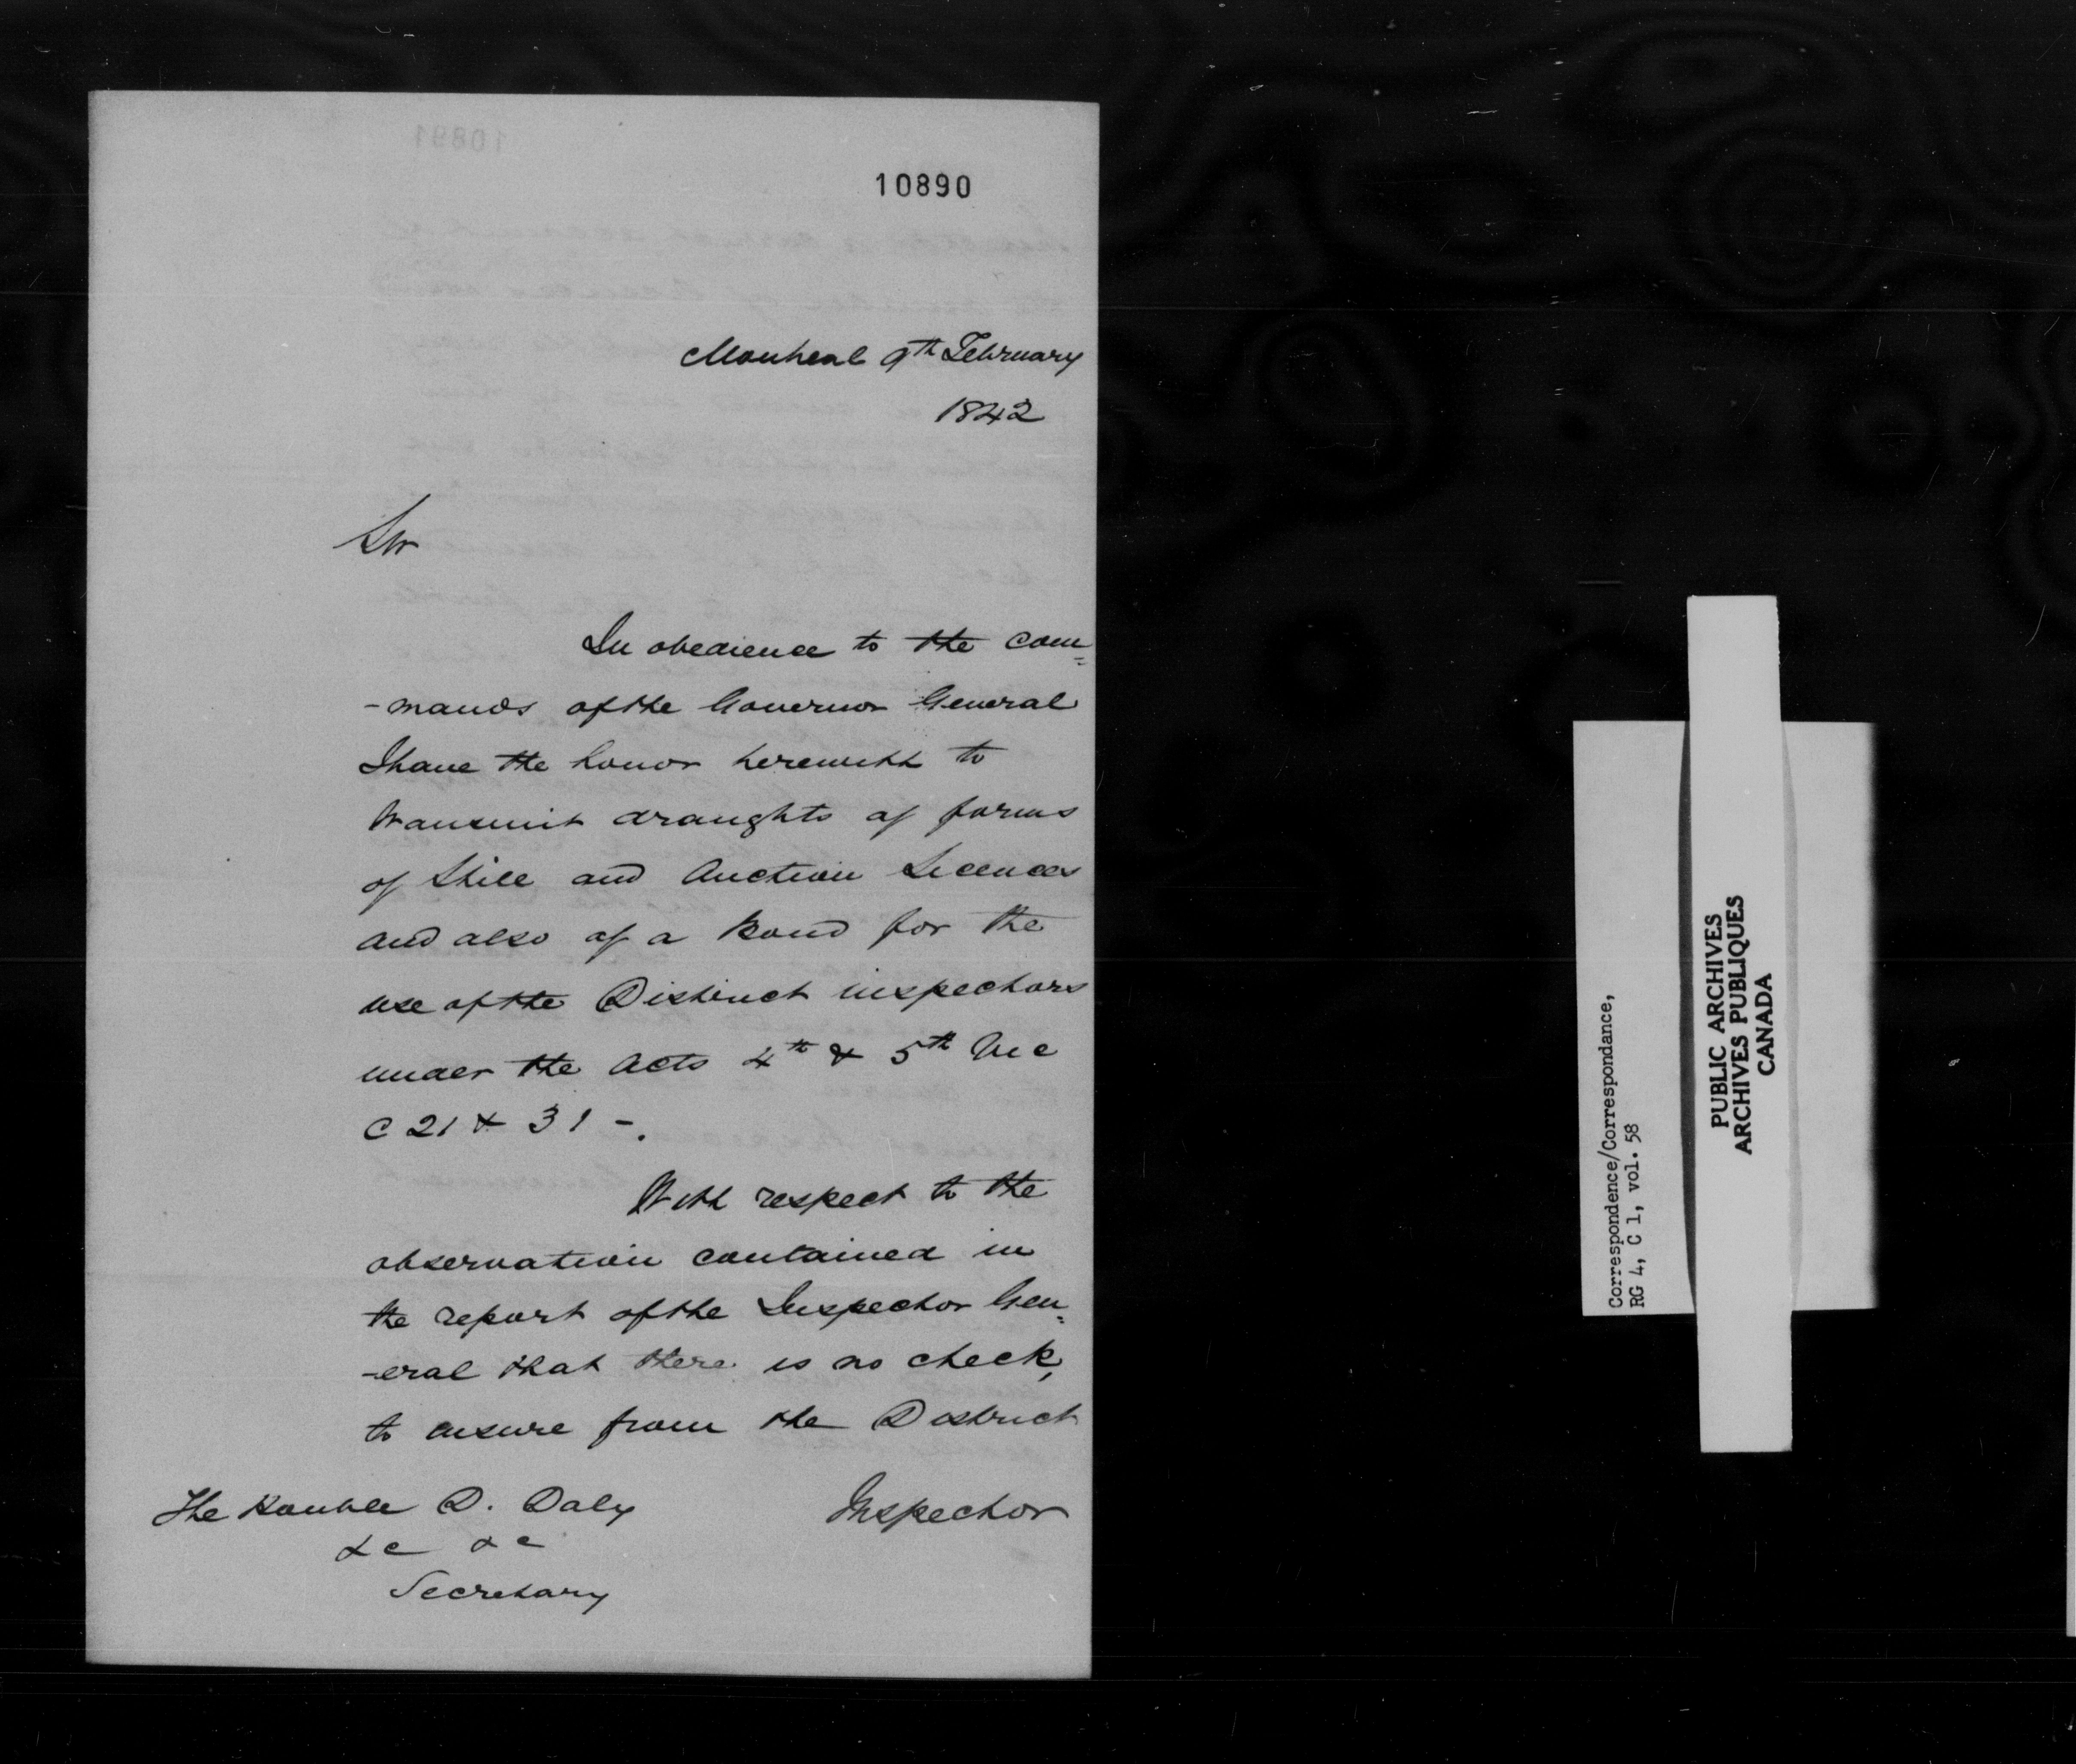 10890
Montreal 9th February
1842
Sir
In obedience to the com=
-mands of the Governor General
I have the honor herewith to
transmit draughts of forms
of Still and Auction Licences
and also of a Bond for the
use of the District inspectors
under the Acts 4th & 5th Vic
C 21 & 31 -.
With respect to the
observation contained in
the report of the Inspector Gen=
-eral that there is no check,
to ensure from the District
Inspector
The Honble D. Daly
&c &c
Secretary
Correspondence/Correspondance,
RG 4, C 1, vol. 58
PUBLIC ARCHIVES
ARCHIVES PUBLIQUES
CANADA